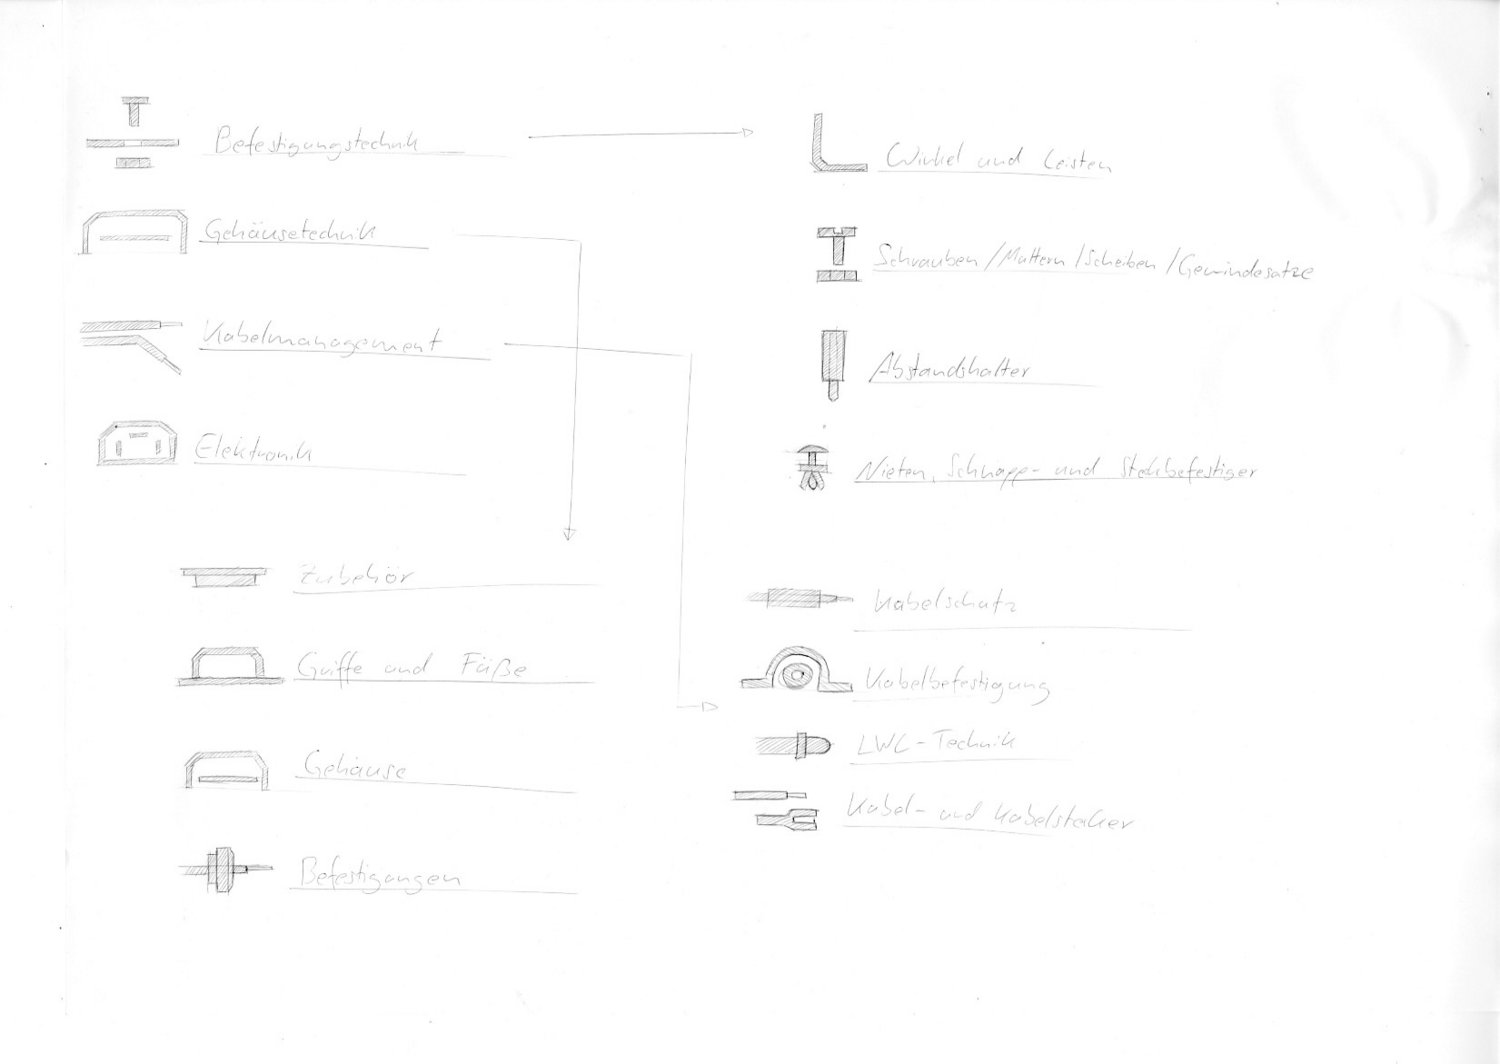 Befestigungstechnik
Gehäusetechnik
Kabelmanagement
Elektronik
Zubehör
Griffe und Füße
Gehäuse
Befestigungen
Winkel und Leisten
Schrauben / Muttern / Scheiben / Gewindesätze
Abstandshalter
Nieten, Schnapp- und Steckbefestiger
Kabelschutz
Kabelbefestigung
LWL-Technik
Kabel- und Kabelstecker